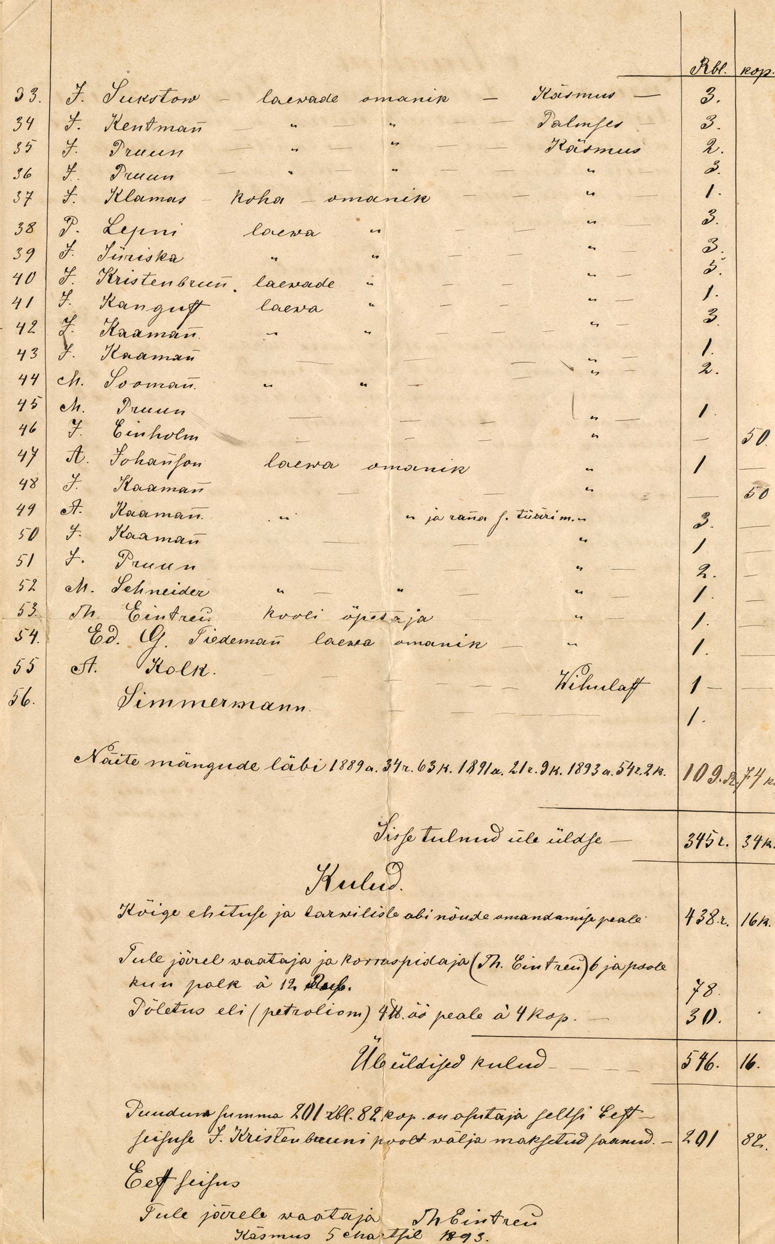 Rbl. kop.
33. J. Sukstow — laewade omanik — Käsmus — 3.
34 J. Kentmañ — " " Palmses 3.
35 J. Pruun — " " Käsmus 2.
36 J. Pruun — " " " 3.
37 J. Klamas — koha — omanik " 1.
38 P. Lepni laewa " " 3.
39 J. Süriska " " " 3.
40 J. Kristenbruñ. laewade " " 5.
41 J. Kangust laewa " " 1.
42 J. Kaamañ " " " 3.
43 J. Kaamañ " 1.
44 M. Soomañ " " " 2.
45 M. Pruun " 1.
46 J. Einholm " — 50.
47 A. Johanson laewa omanik " 1
48 J. Kaamañ " — 50
49 A. Kaamañ " " ja raña " 3.
50 J. Kaamañ " 1
51 J. Pruun " 2.
52 M. Schneider " " " 1.
53. Th. Eintreü kooli õpetaja " 1.
54. Ed. G. Tiedemañ laewa omanik — " 1.
55 A. Kolk. Wihulast 1 —
56. Simmermann. 1.
Näite mängude läbi 1889 a. 34 r. 63 k. 1891 a. 21 r. 9 k. 1893 a. 54 r. 2 k. 109. R. 74 k.
Sisse tulnud üle üldse — 345 r. 34 k.
Kulud.
Kõige ehituse ja tarwiliste abinõude omandamise peale 438. r. 16 k.
Tule järel waataja ja korraspidaja (Th. Eintreü) 6 ja poole
kuu palk à 12 Rub. 78.
Põletus eli (petroliom) öö peale à 4 kop. — 30.
Üleüldised kulud — 546. 16.
Puuduw summa 201 rbl. 82 kop. on asutaja seltsi Eest-
seisuse J. Kristenbruuni poolt wälja maksetud saanud. — 201 82.
Eestseisus
Tule järele waataja Th Eintreü
Käsmus 5 1893.